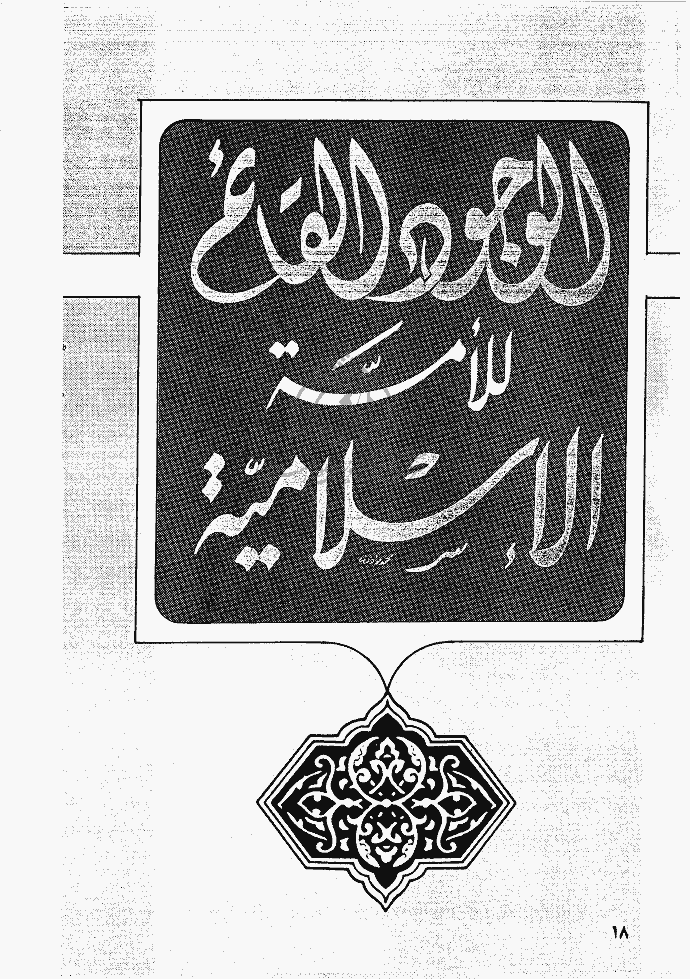 الوجود القائم
للأمّة
الإسلاميّة
١٨